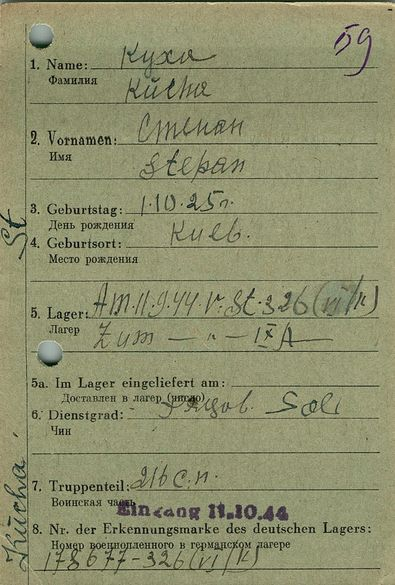 59
1. Name: Куха
Фамилия
Kücha
2. Vornamen: Степан
Имя
Stepan
3. Geburtstag: 1.10.25г.
День рождения
4. Geburtsort: Киев.
Место рождения
St
5. Lager: Am 11.9.44 v. St. 326 (VI/K)
Лагер
Zum — " — IX A
5a. Im Lager eingeliefert am:
Доставлен в лагер (число)
6. Dienstgrad: Рядов. Sol.
Чин
7. Truppenteil: 216 с.п.
Воинская часть
Eingang 11.10.44
Kücha
8. Nr. der Erkennungsmarke des deutschen Lagers:
Номер военнопленного в германском лагере
178677-326 (VI/K)